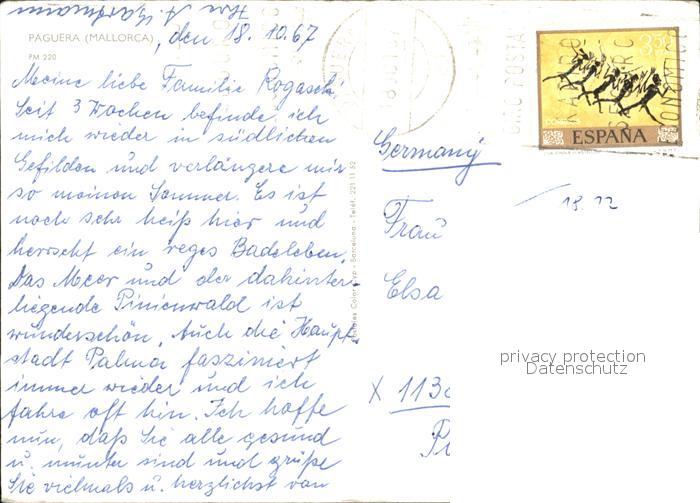 Ihre A. Hartmann
PAGUERA (MALLORCA)
, den 18.10.67
PM 220
Meine liebe Familie Rogasch!
Seit 3 Wochen befinde ich
mich wieder in südlichen
Gefilden und verlängere mir
so meinen Sommer. Es ist
noch sehr heiß hier und
herrscht ein reges Badeleben.
Das Meer und der dahinter-
liegende Pinienwald ist
wunderschön. Auch die Haupt-
stadt Palma fasziniert
immer wieder und ich
fahre oft hin. Ich hoffe
nun, daß Sie alle gesund
u. munter sind und grüße
Sie vielmals u. herzlichst von
Color - Barcelona - Teléf. 221 11 52
3,50
CORREOS
ESPAÑA
Germany
18.12
Frau
Elsa
privacy protection
Datenschutz
X 113